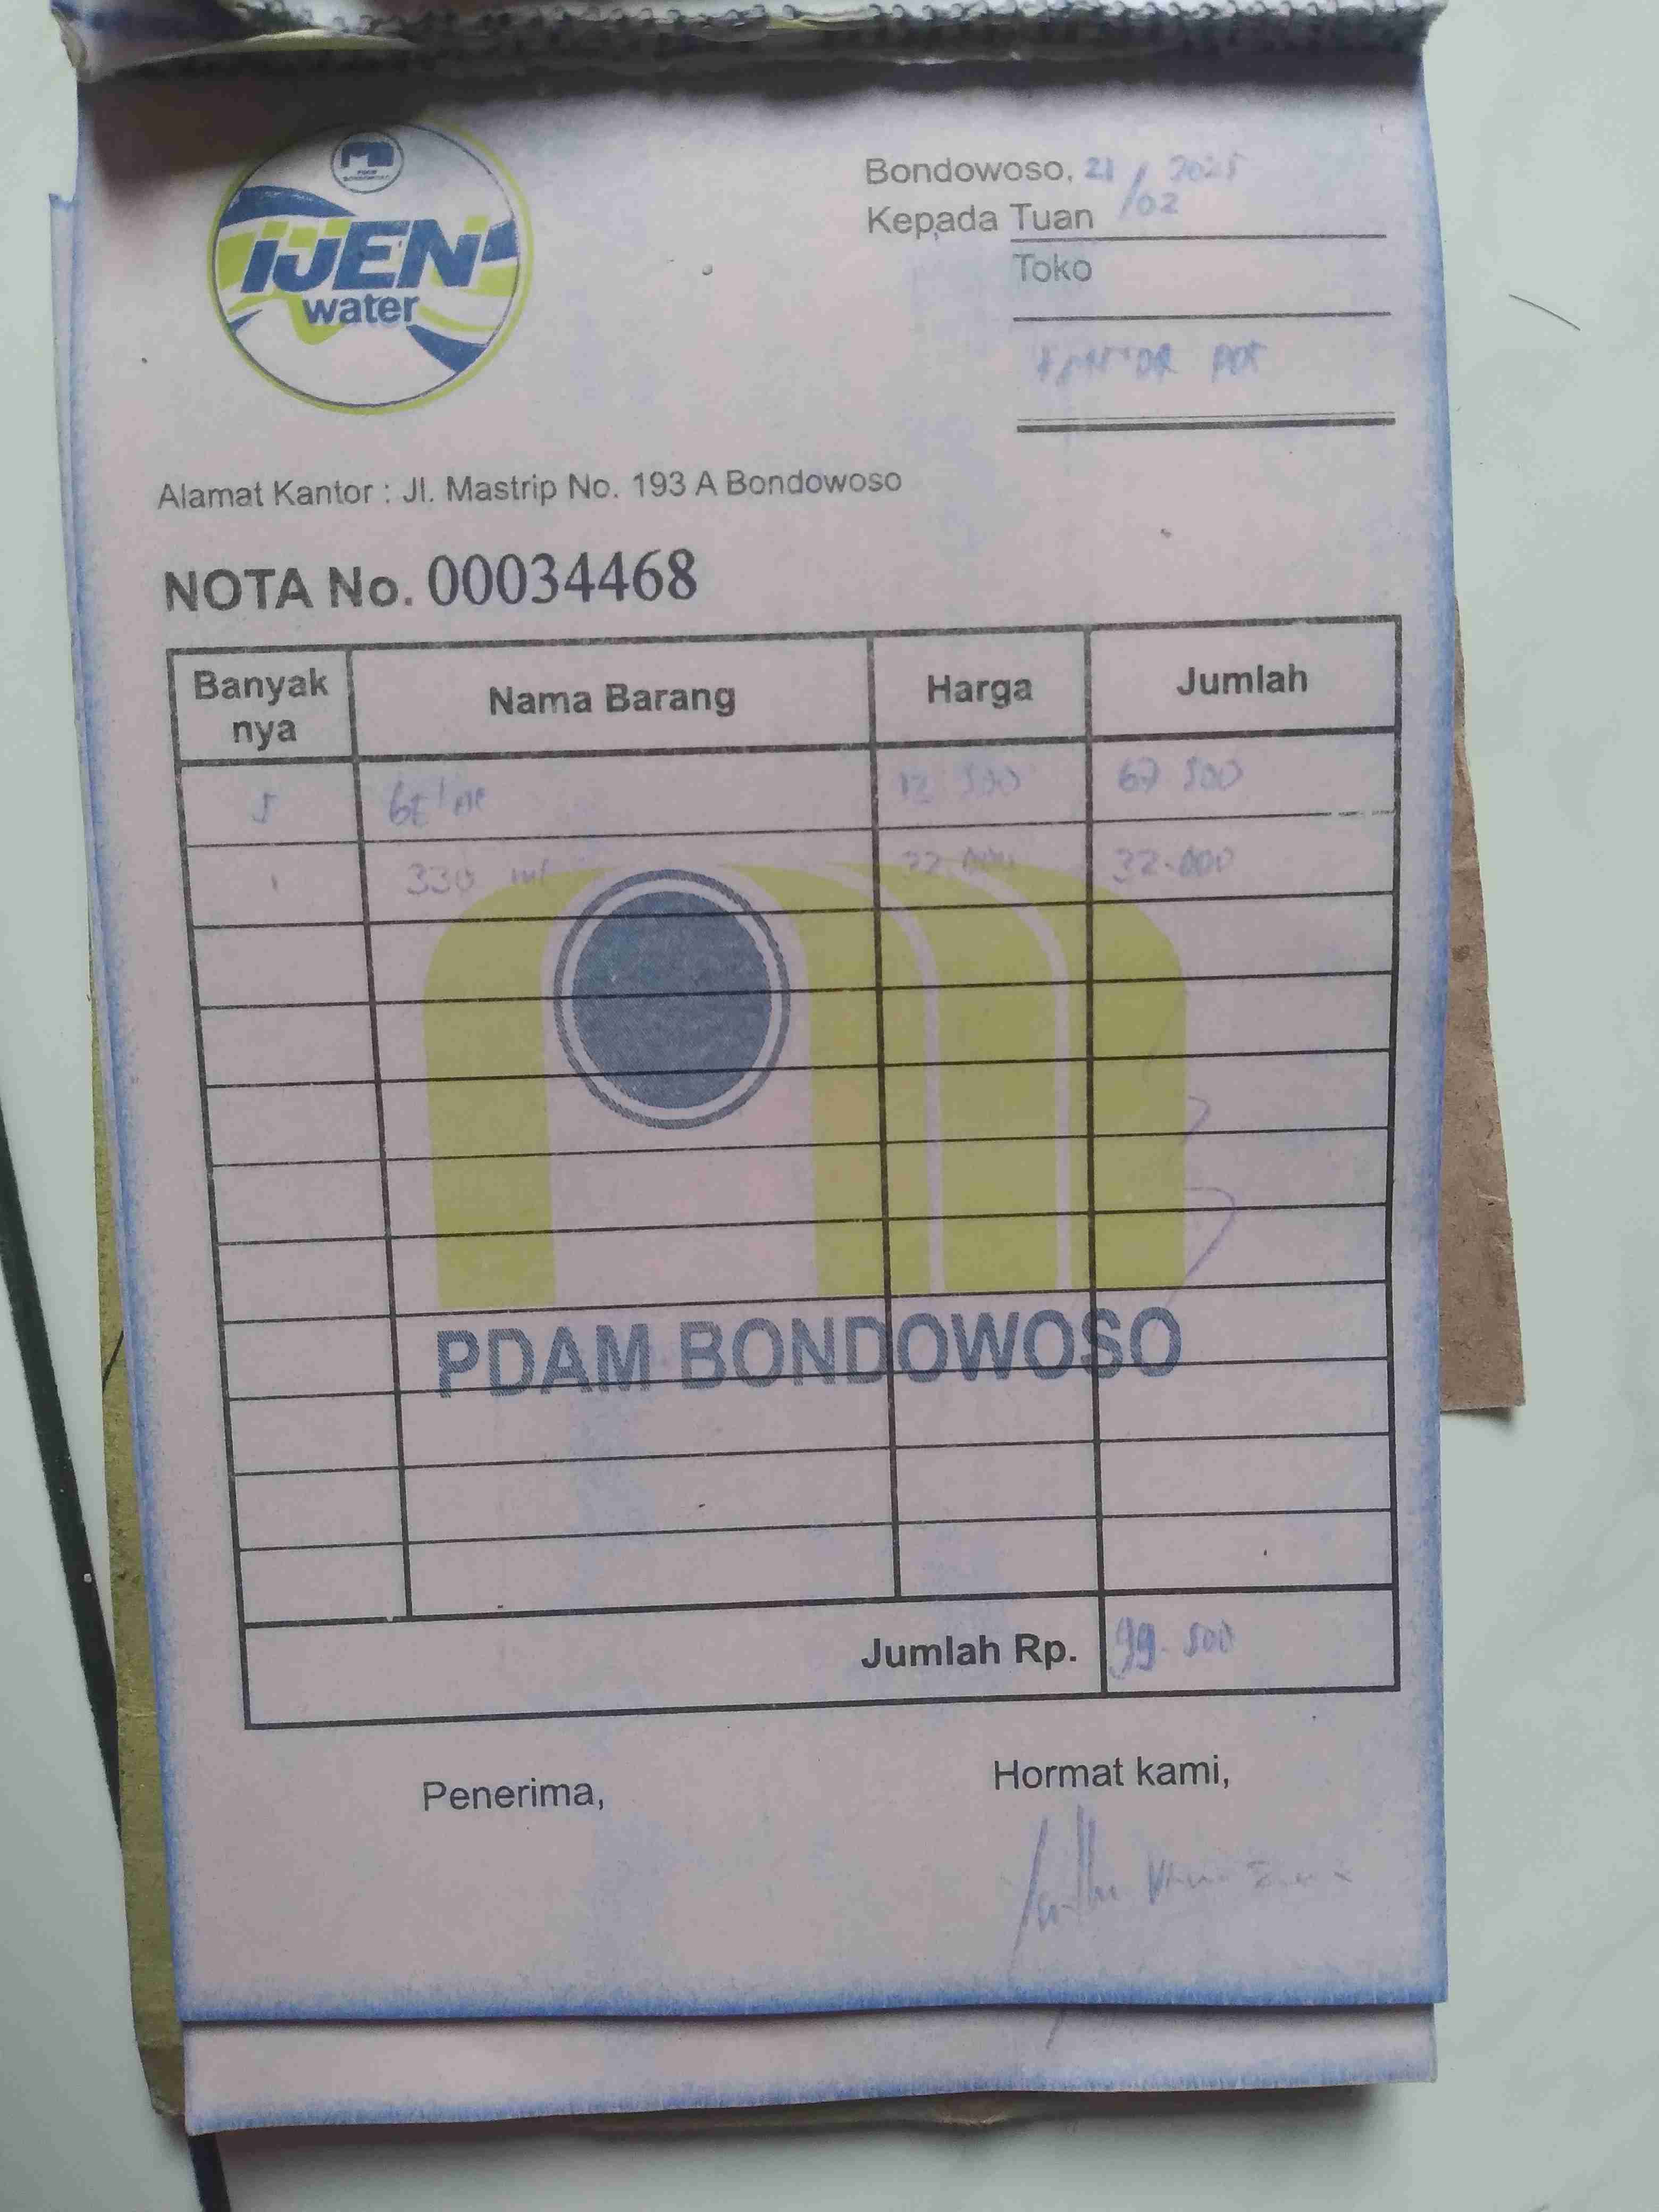 IJEN
water
Bondowoso, 21/02 2025
Kepada Tuan
Toko
Alamat Kantor : Jl. Mastrip No. 193 A Bondowoso
NOTA No. 00034468
Banyak nya Nama Barang Harga Jumlah
5 12 500 67 500
1 330 ml 32.000 32.000
PDAM BONDOWOSO
Jumlah Rp. 99.500
Penerima, Hormat kami,